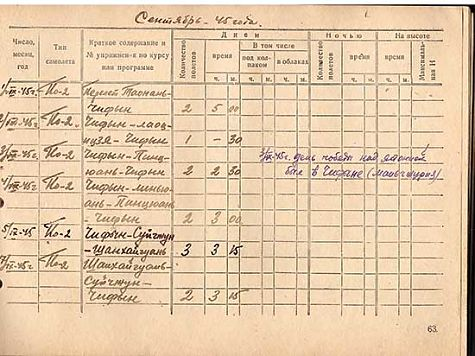 Сентябрь - 45 года.
Число, месяц, год
Тип самолета
Краткое содержание и № упражнен-я по курсу или программе
Д н е м
Н о ч ь ю
На высоте
Количество полетов
время
В том числе
под колпаком
в облаках
Количество полетов
время
время
Максимальная Н
ч. м. ч. м. ч. м. ч. м. ч. м.
1/IX-45г. По-2 Перелет Таонань-
Чифын 2 5 00
2/IX-45г. По-2 Чифын-Лаоц-
зуя-Чифын 1 - 30
3/IX-45г. По-2 Чифын-Пинц-
юань-Чифын 2 2 30
3/IX-45г. день победы над японией
был в Чифане (манчжурия)
4/IX-45г. По-2 Чифын-
ань-Пинцюань
-Чифын 2 3 00
5/IX-45 По-2 Чифын-Суйчжун-
Шанхайгуань 3 3 15
/IX-45г. По-2 Шанхайгуань-
Суйчжун-
Чифын 2 3 15
63.